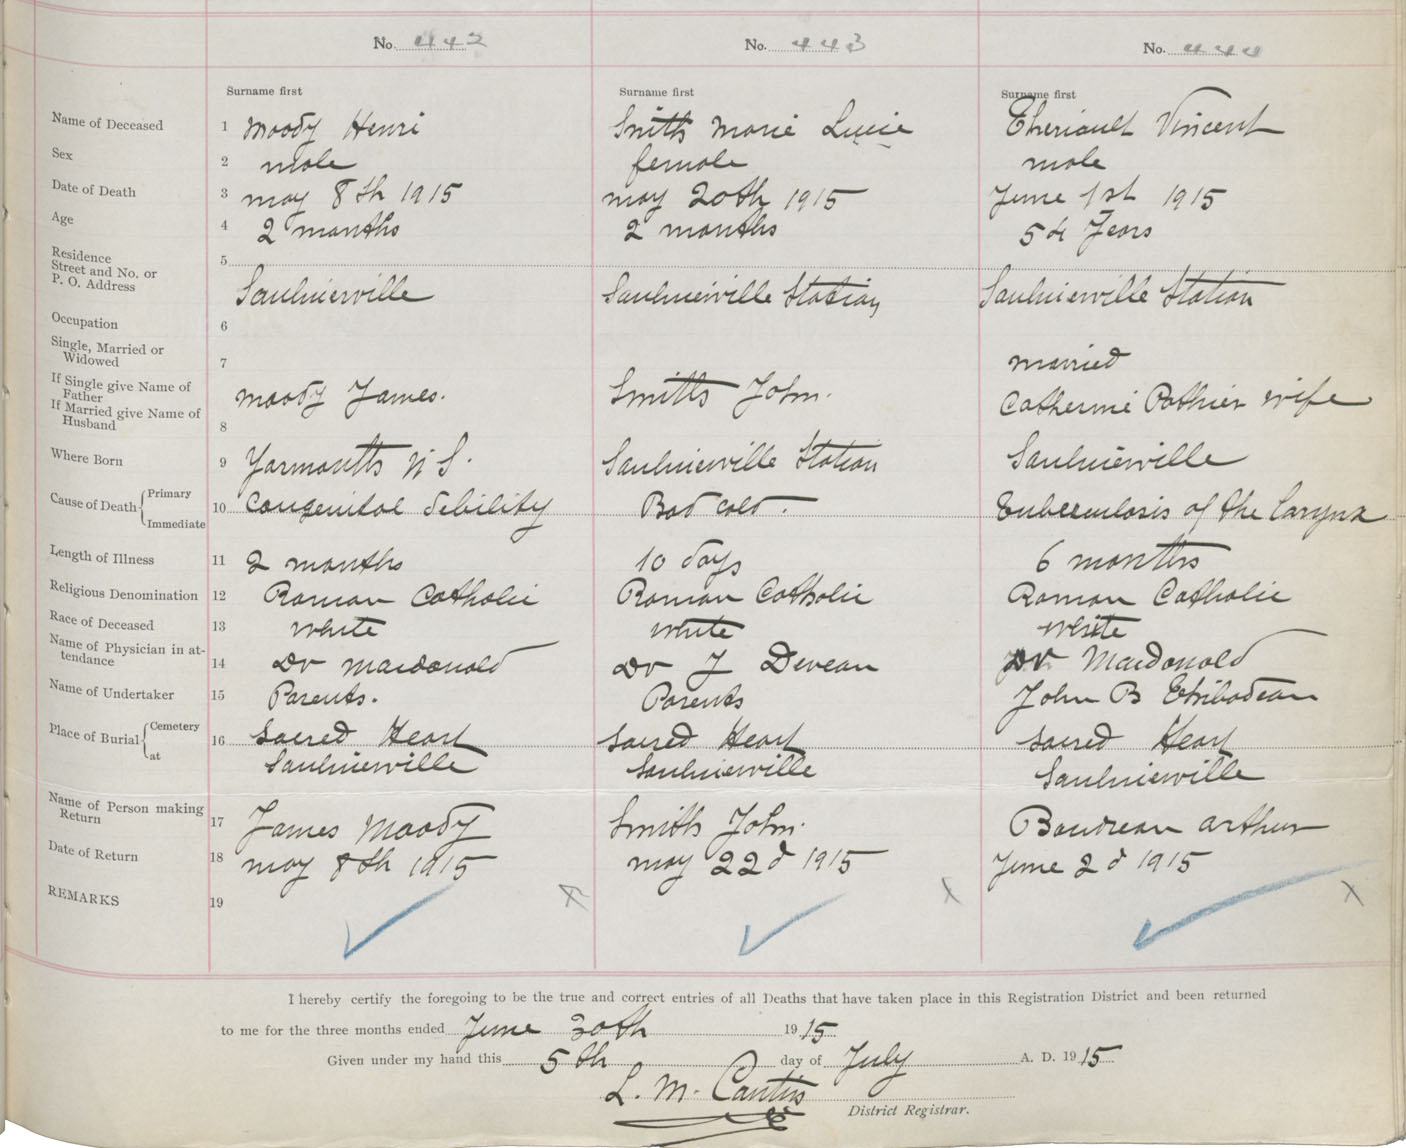 No. 442 No. 443 No. 444
Surname first Surname first Surname first
Name of Deceased 1 Moody Henri Smith Marie Lucie Theriault Vincent
Sex 2 male female male
Date of Death 3 may 8th 1915 may 20th 1915 June 1st 1915
Age 4 2 months 2 months 54 Years
Residence
Street and No. or
P. O. Address 5 Saulnierville Saulnierville Station Saulnierville Station
Occupation 6
Single, Married or
Widowed 7 married
If Single give Name of
Father
If Married give Name of
Husband 8 Moody James. Smith John. Catherine Pothier wife
Where Born 9 Yarmouth N S. Saulnierville Station Saulnierville
Cause of Death { Primary
Immediate 10 Congenital debility Bad cold. Tuberculosis of the larynx
Length of Illness 11 2 months 10 days 6 months
Religious Denomination 12 Roman Catholic Roman Catholic Roman Catholic
Race of Deceased 13 White White White
Name of Physician in at-
tendance 14 Dr Macdonald Dr J Deveau Dr Macdonald
Name of Undertaker 15 Parents. Parents John B Thibodeau
Place of Burial { Cemetery 16 Sacred Heart Sacred Heart Sacred Heart
at Saulnierville Saulnierville Saulnierville
Name of Person making
Return 17 James Moody Smith John. Boudreau Arthur
Date of Return 18 may 8th 1915 may 22d 1915 June 2d 1915
REMARKS 19
I hereby certify the foregoing to be the true and correct entries of all Deaths that have taken place in this Registration District and been returned
to me for the three months ended June 30th 1915
Given under my hand this 5th day of July A. D. 1915
L. M.
District Registrar.